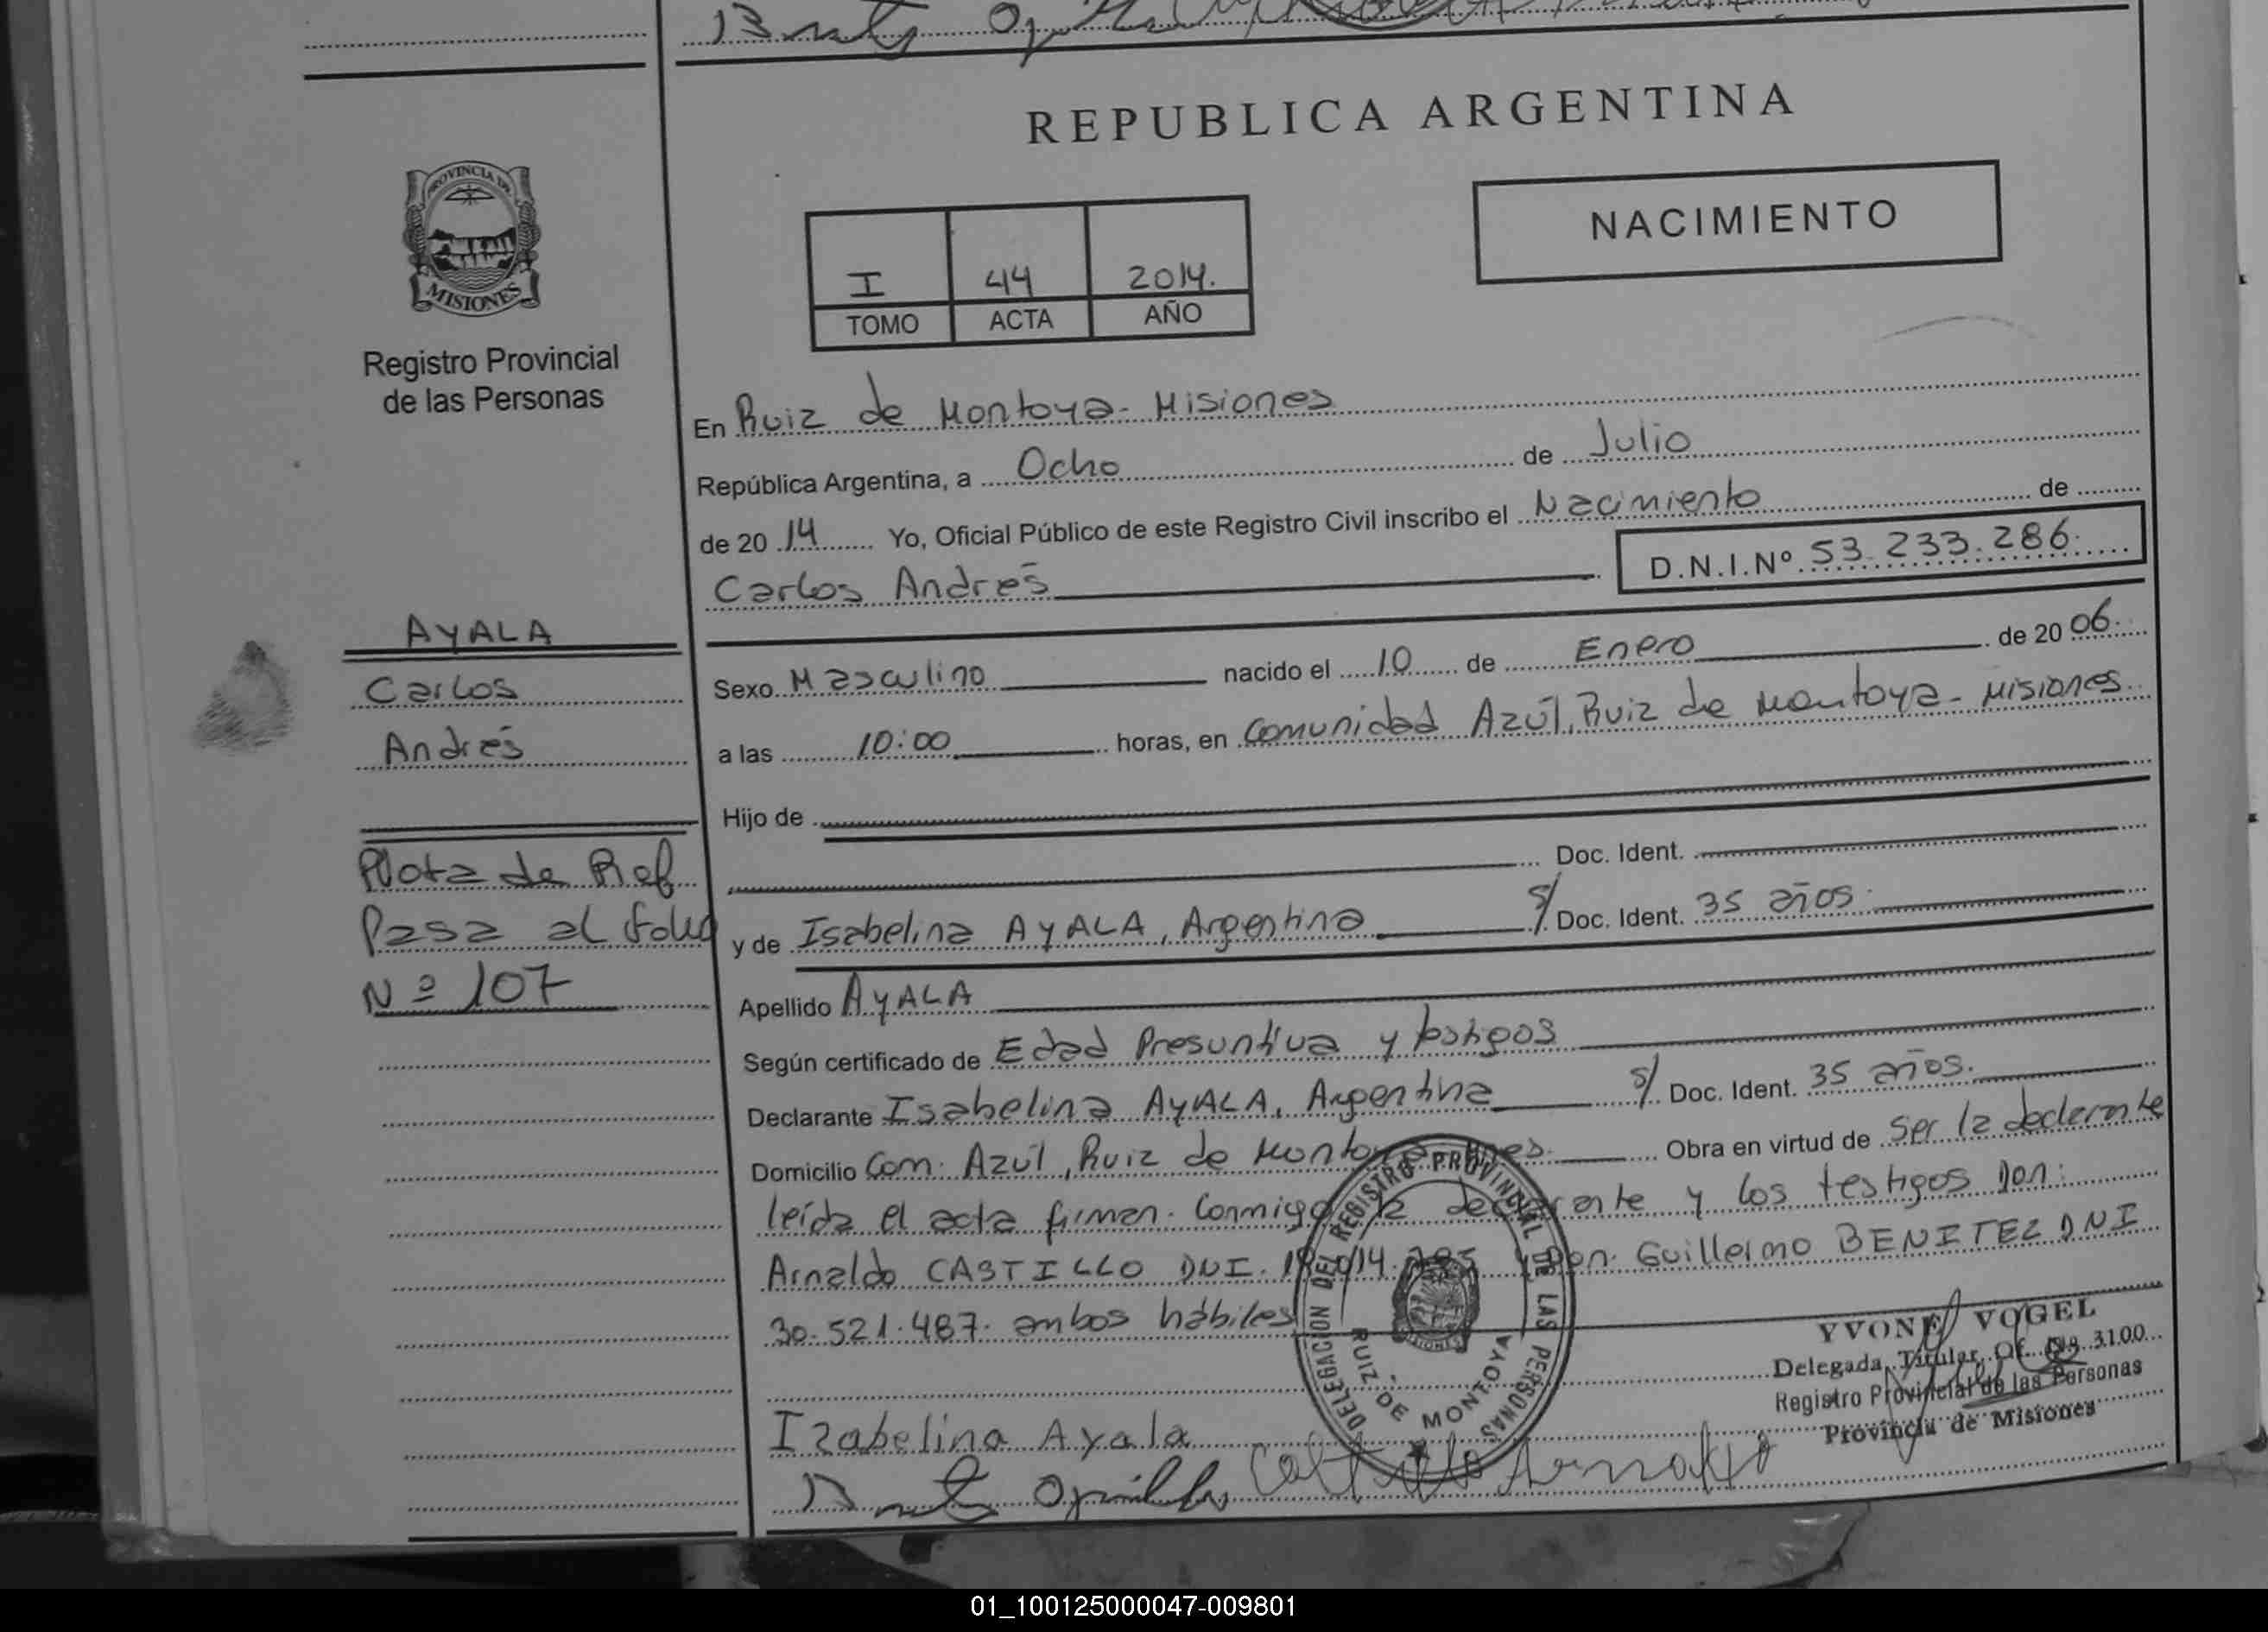 REPUBLICA ARGENTINA
NACIMIENTO
I 44 2014.
TOMO ACTA AÑO
PROVINCIA DE
MISIONES
Registro Provincial
de las Personas
AYALA
Carlos
Andrés
Nota de Ref
Pasa al folio
Nº 107
En Ruiz de Montoya - Misiones
República Argentina, a Ocho de Julio
de 20 14 Yo, Oficial Público de este Registro Civil inscribo el Nacimiento de
Carlos Andrés D.N.I.Nº 53.233.286.
Sexo Masculino nacido el 10 de Enero de 20 06.
a las 10:00 horas, en Comunidad Azúl, Ruiz de Montoya - Misiones.
Hijo de
Doc. Ident.
y de Isabelina AYALA, Argentina s/ Doc. Ident. 35 años.
Apellido AYALA
Según certificado de Edad Presuntiva y testigos
Declarante Isabelina AYALA, Argentina s/ Doc. Ident. 35 años.
Domicilio Com. Azúl, Ruiz de Montoya Obra en virtud de Ser la declarante
leída el acta firman conmigo la declarante y los testigos Don:
Arnaldo CASTILLO DNI. y Don Guillermo BENITEZ DNI
30.521.487. ambos hábiles
DELEGACION DEL REGISTRO PROVINCIAL DE LAS PERSONAS
RUIZ DE MONTOYA
YVONE VOGEL
Delegada Titular Of. Nº 3100
Registro Provincial de las Personas
Provincia de Misiones
Izabelina Ayala
Castillo Arnaldo
01_100125000047-009801